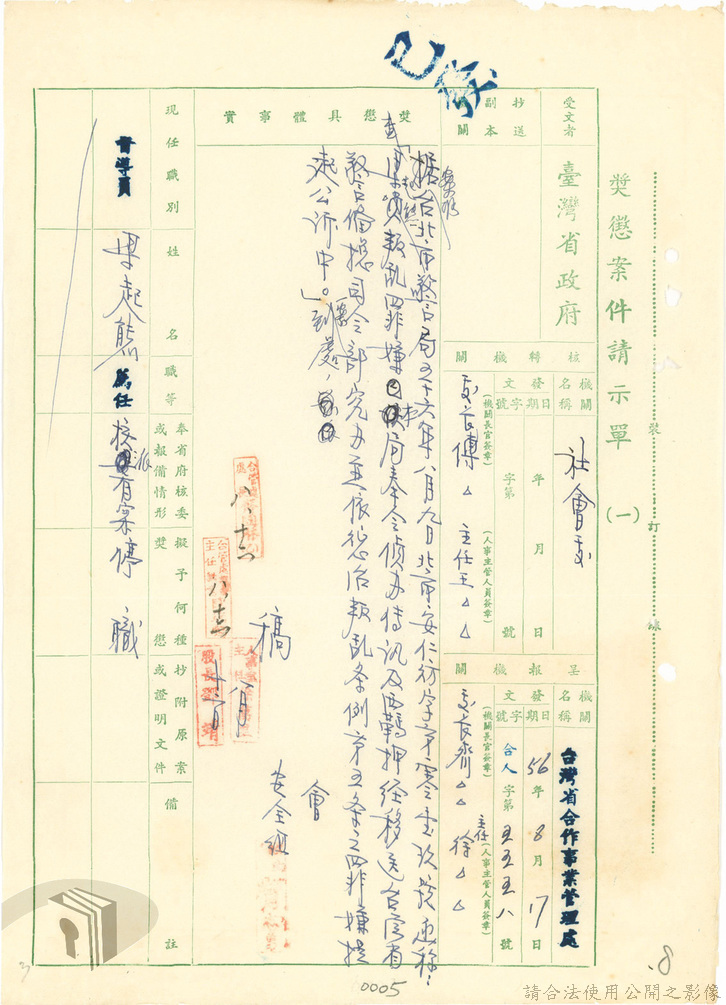 已發
獎懲案件請示單(一)
裝訂線
受文者 臺灣省政府
抄送副本機關
核轉機關
機關名稱 社會處
發文 日期 年 月 日
字號 字第 號
(機關長官簽章) 處長傅△
(人事主管人員簽章) 主任王△△
呈報機關
機關名稱 台灣省合作事業管理處
發文 日期 56年8月17日
字號 合人字第五五五八號
(機關長官簽章) 處長齊△△
(人事主管人員簽章) 主任徐△△
獎懲具體事實
據台北市警察局五十六年八月九日北市安仁彷字第零
叛亂罪嫌
本局奉令偵辦傳訊
羈押經移送台灣省
警備總司令部究辦並依懲治叛亂条例第五条之罪嫌提
起公訴中。」到處,
稿
會
安全組
八月
現任職別 姓名 職等 奉省府核委或報備情形 擬予何種獎懲 抄附原案或證明文件 備註
督導員
起熊
薦任
核派有案
停職
0005
8
請合法使用公開之影像